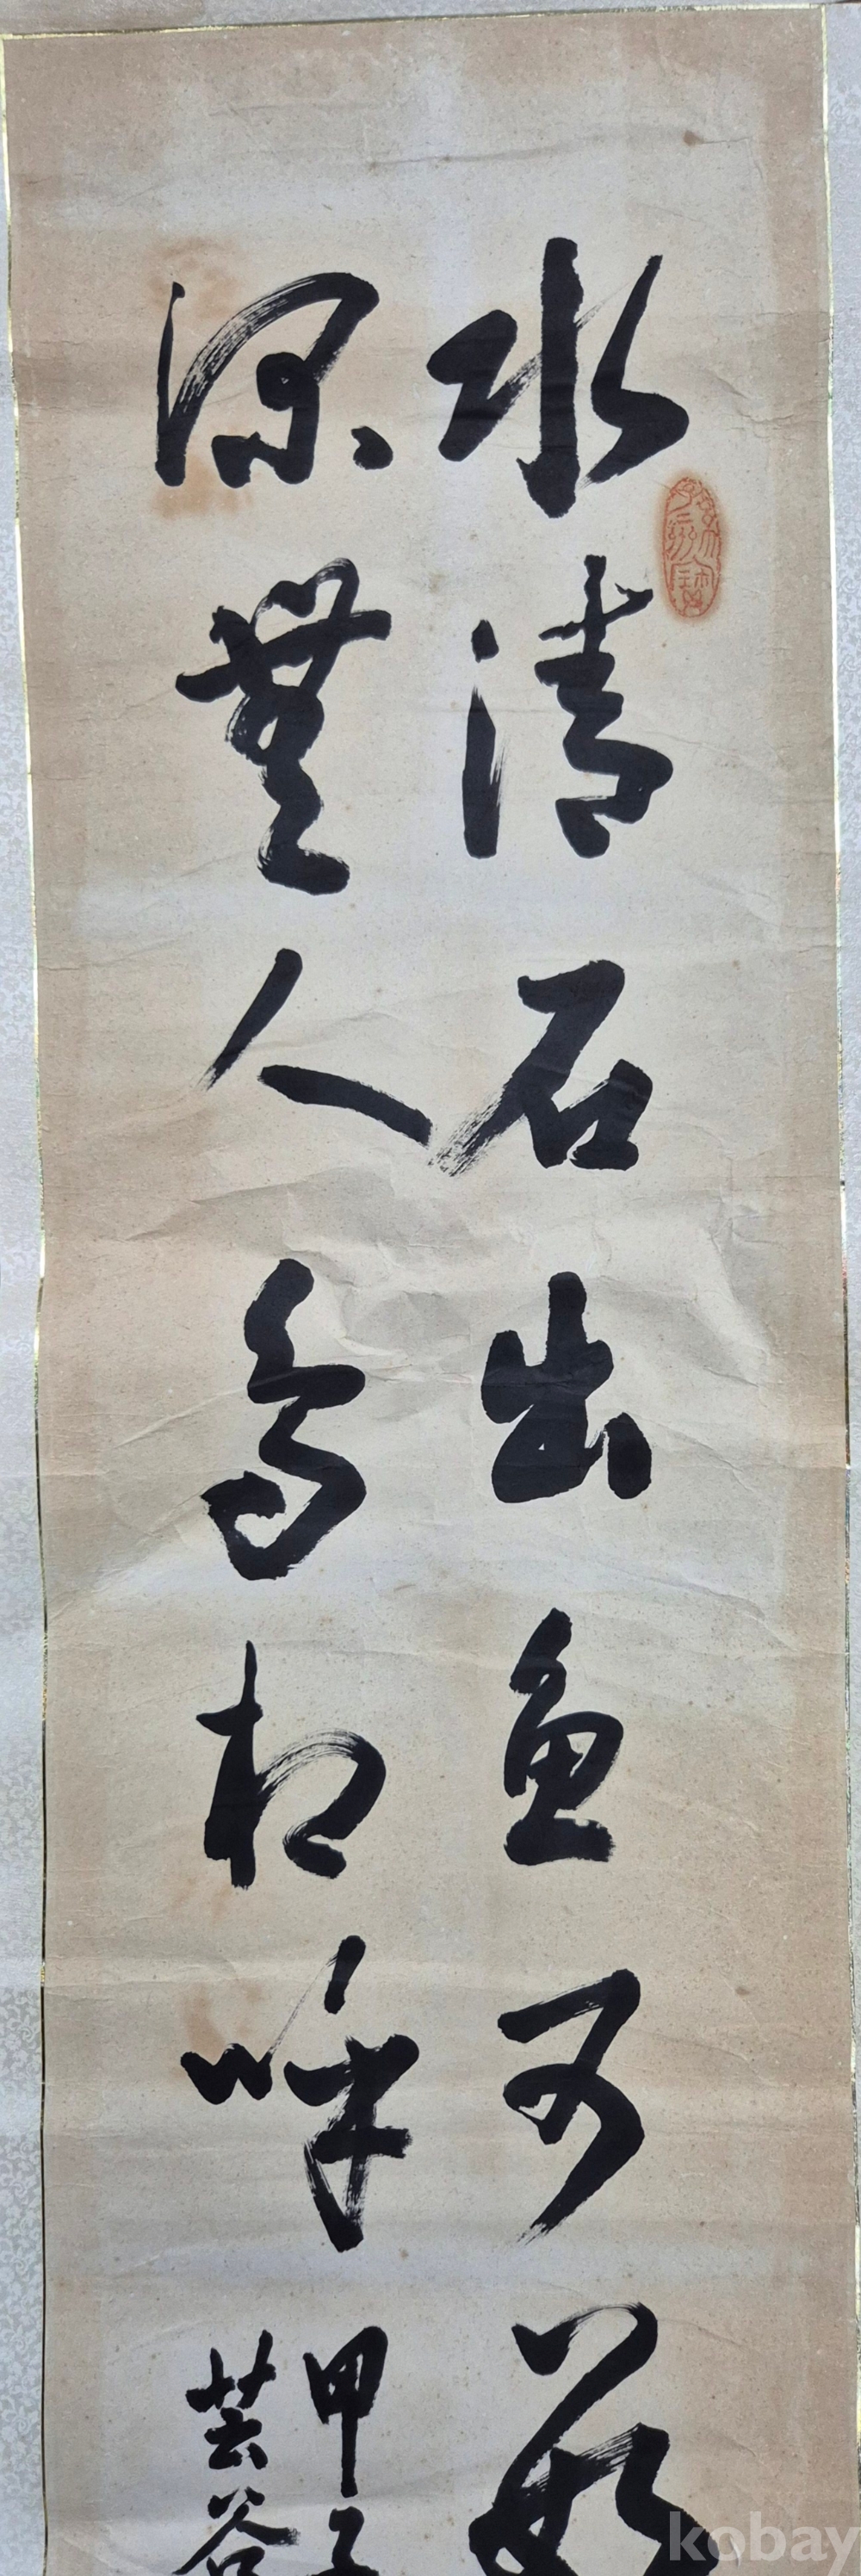 水清石出魚可數
深無人鳥相呼
甲子
芸谷
kobay